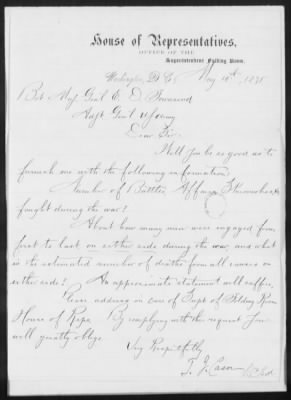 House of Representatives,
OFFICE OF THE
Superintendent Folding Room.
Washington, D.C. May 10th, 187
Bvt Maj Genl E. D. Townsend
Adjt Genl U.S. Army
Dear Sir
Will you be so good as to
furnish me with the following information
Number of Battles, Affrays, Skirmishes, &c
fought during the war?
About how many men were engaged from
first to last on either side during the war, and what
is the estimated number of deaths from all causes on
either side? An approximate statement will suffice.
Please address in care of Supt of Folding Room
House of Reps. By complying with this request you
will greatly oblige
Very Respectfully
T. J. Cason